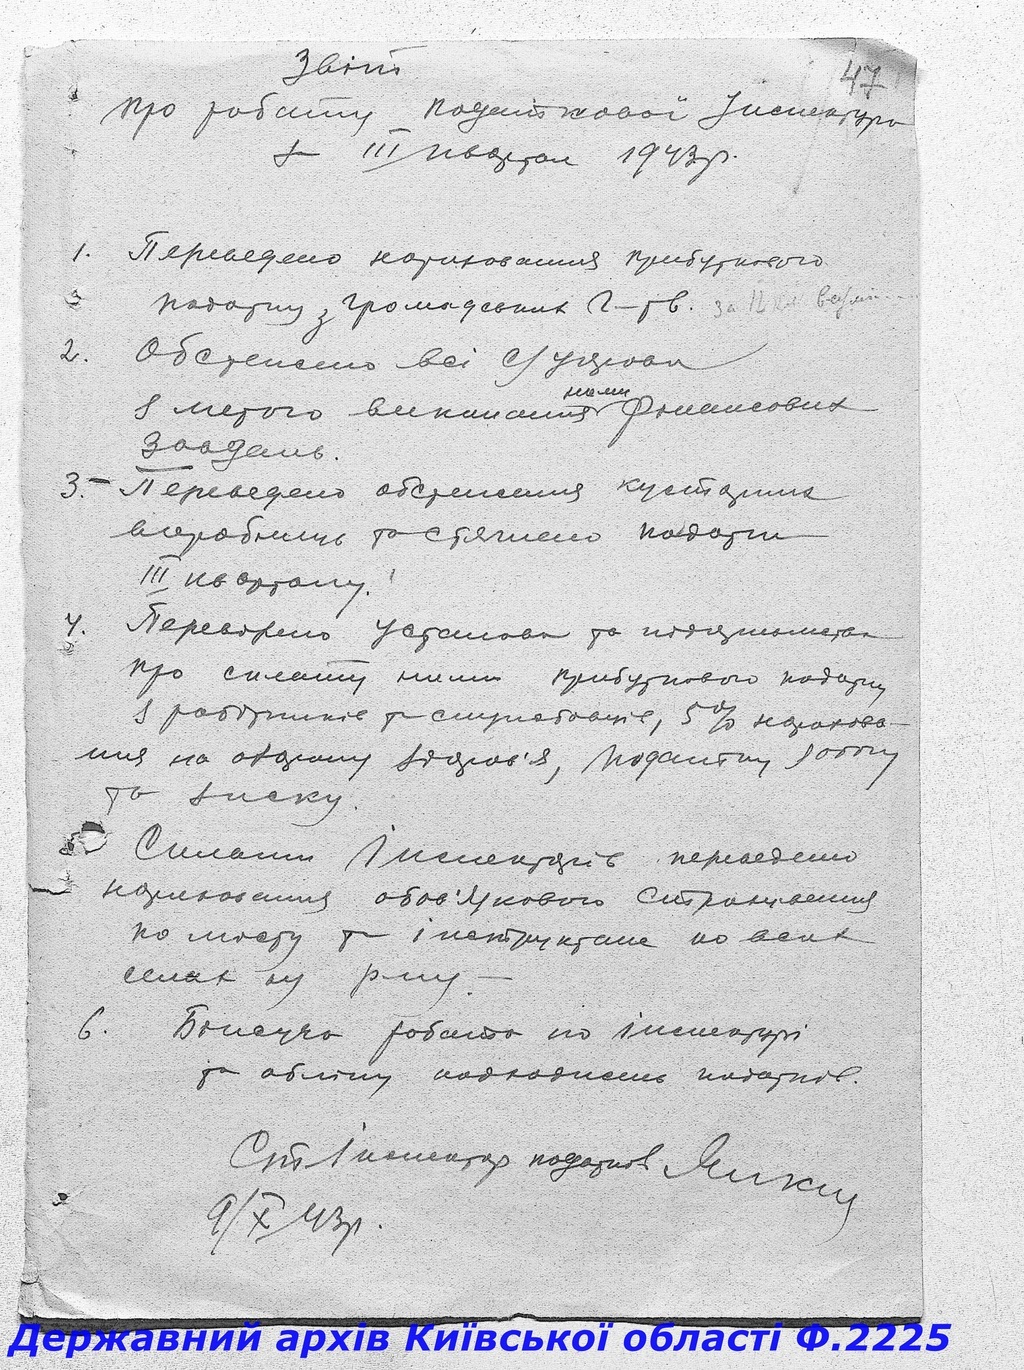 Звіт
47
про работу податкової Інспектури
за III квартал 1943р.
1. Переведено нарахования прибуткового
податку з громадських г-тв. за II кв.
2. Обстежено всі с/управи
з метою виконання ними фінансових
завдань.
3. Переведено обстеження кустарних
виробництв та стягнено податки
III кварталу!
4. Перевірено установи та підприємства
про сплату ними прибуткового податку
з робітників та службовців, 5% нарахова-
ння на охорону здоров'я, податку
та зиску.
5. Силами Інспекторів переведено
нарахования обов'язкового страхування
по місту та інструктаж по всіх
селах р-ну.
6. Біжуча работа по інспектурі
та обліку надходжень податків.
Ст. Інспектор податків
9/X 43р.
Державний архів Київської області Ф.2225